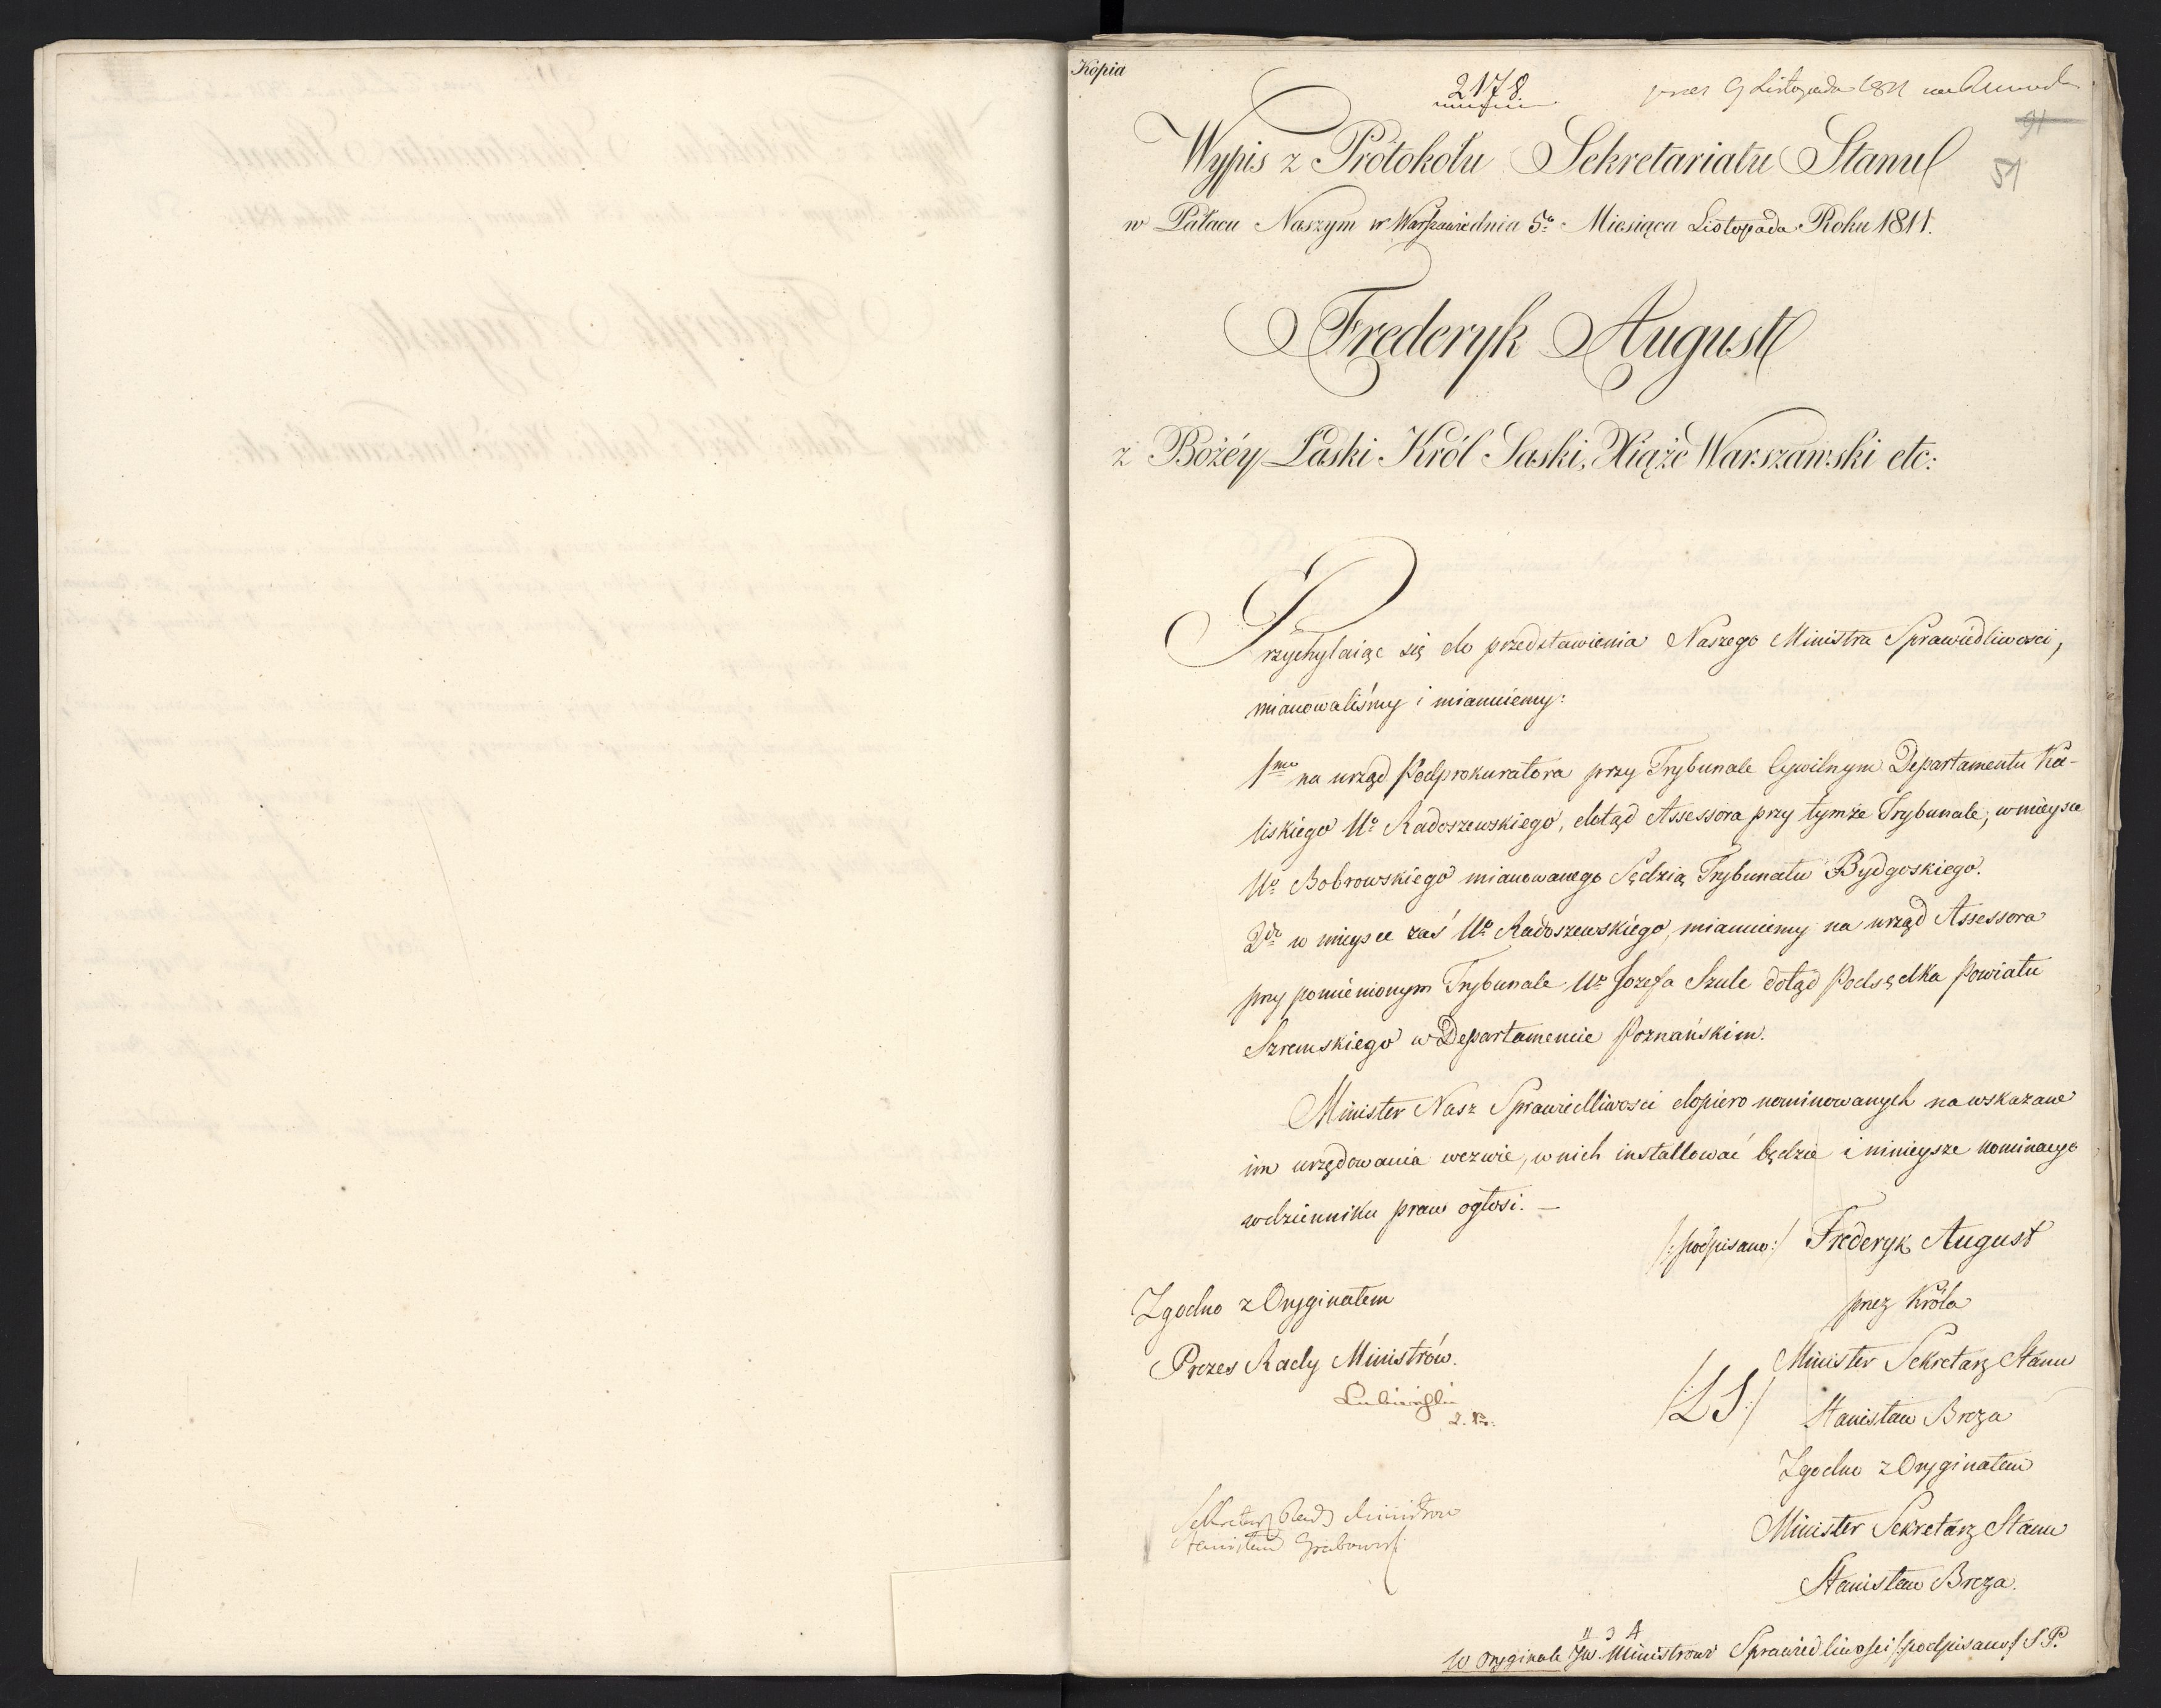 Kopia
2178
9 Listopada 1811
91
51
Wypis z Protokołu Sekretariatu Stanu
w Pałacu Naszym w Warszawie dnia 5º Miesiąca Listopada Roku 1811.
Frederyk August
z Bożéy Łaski Król Saski, Xiąże Warszawski etc:
Przychylaiąc się do przedstawienia Naszego Ministra Sprawiedliwosci,
mianowaliśmy i mianuiemy:
1mo na urząd Podprokuratora przy Trybunale Cywilnym Departamentu Ka-
liskiego Uº Radoszewskiego, dotąd Assessora przy tymże Trybunale, w mieysce
Uº Bobrowskiego mianowanego Sędzią Trybunału Bydgoskiego.
2do w mieysce zaś Uº Radoszewskiego, mianuiemy na urząd Assessora
przy pomienionym Trybunale Uº Jozefa Szulc dotąd Podsędka Powiatu
Szremskiego w Departamencie Poznańskim.
Minister Nasz Sprawiedliwosci dopiero nominowanych na wskazane
im urzędowania wezwie, w nich installować będzie i ninieysze nominacye
w dzienniku praw ogłosi. —
/:podpisano:/ Frederyk August
przez Króla
Minister Sekretarz Stanu
/LS/ Stanisław Breza
Zgodno z Oryginałem
Minister Sekretarz Stanu
Stanisław Breza.
Zgodno z Oryginałem
Prezes Rady Ministrów.
Sekretarz Rady Ministrow
Stanisław Grabowski
W Oryginale JW. Ministrowi Sprawiedliwości /podpisano/ S.P.